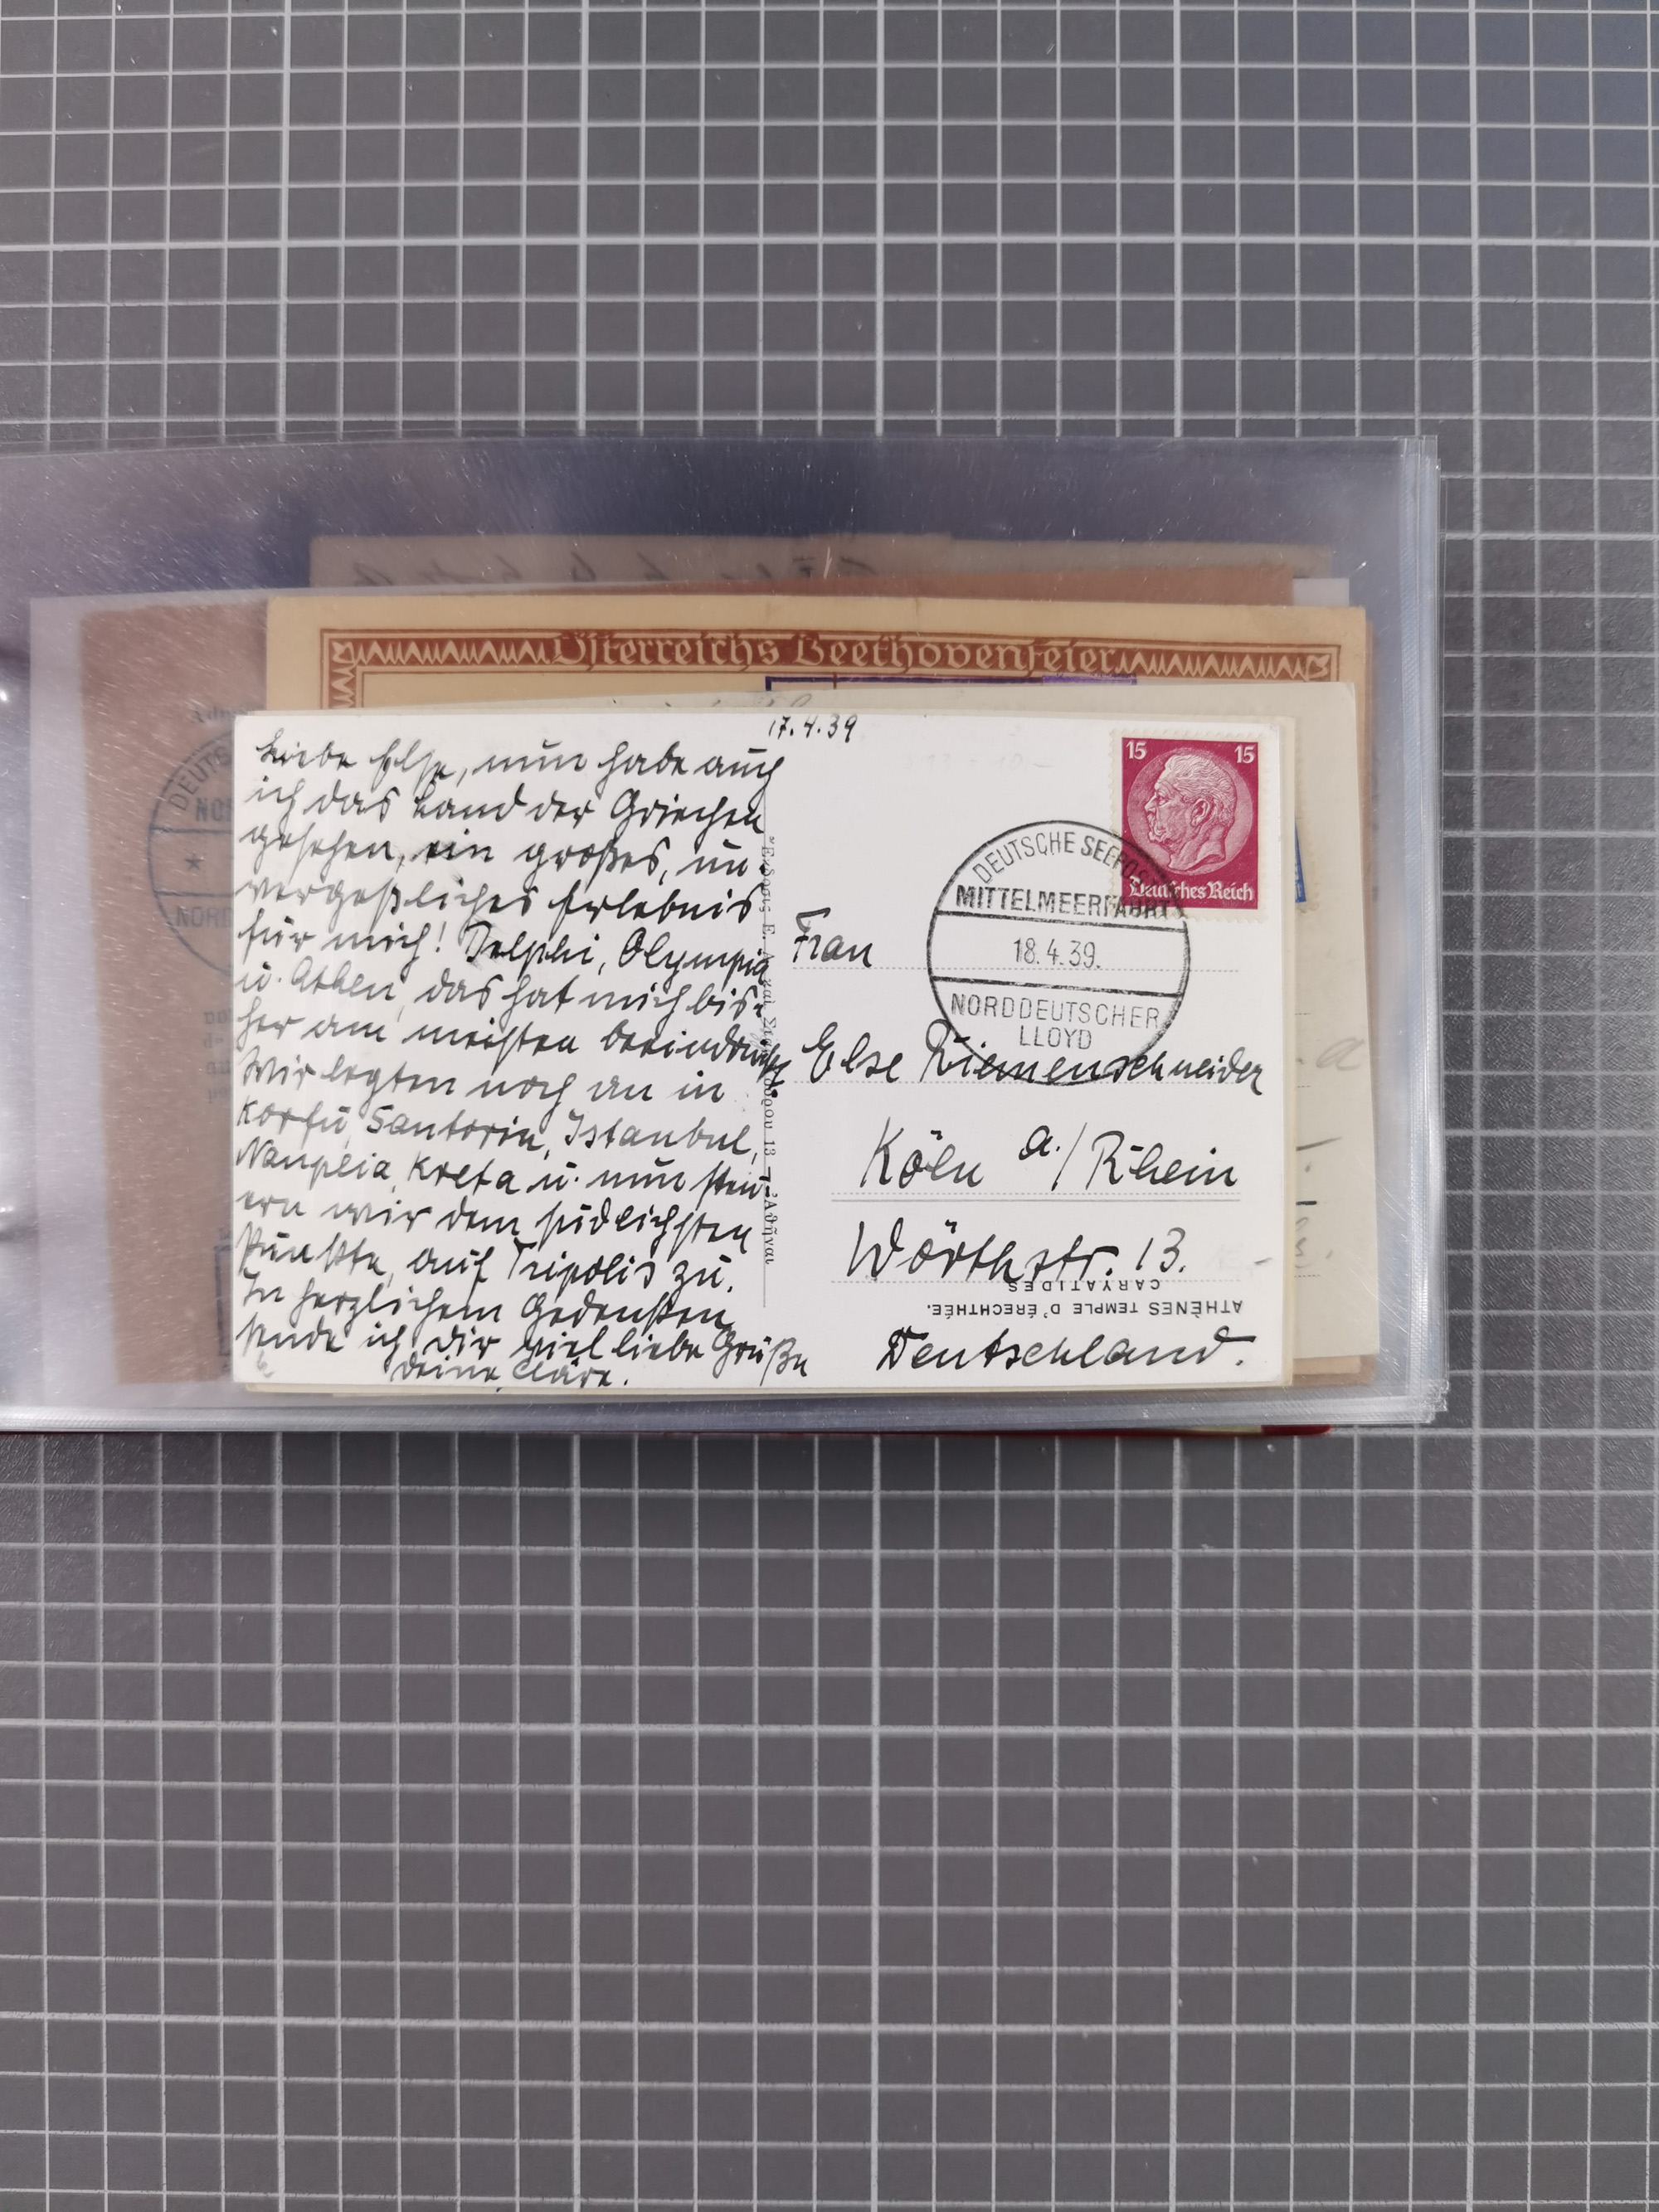 Österreichs Beethovenfeier
17.4.39
Liebe Else, nun habe auch
ich das Land der Griechen
gesehen, ein großes, un-
vergeßliches Erlebnis
für mich! Delphi, Olympia
u. Athen, das hat mich bis-
her am meisten beeindruckt.
Wir legten noch an in
Korfu, Santorin, Istanbul,
Nauplia, Kreta u. nun steu-
ern wir dem südlichsten
Punkte, auf Tripolis zu.
In herzlichem Gedenken
sende ich dir viel liebe Grüße
Deine Cläre.
15 15
Deutsches Reich
DEUTSCHE SEEPOST
MITTELMEERFAHRT
18.4.39.
NORDDEUTSCHER
LLOYD
Frau
Else Riemenschneider
Köln a./Rhein
Wörthstr. 13.
Deutschland.
ATHÈNES TEMPLE D'ÉRECHTHÉE.
CARYATIDES
DEUTS
NO
NORD